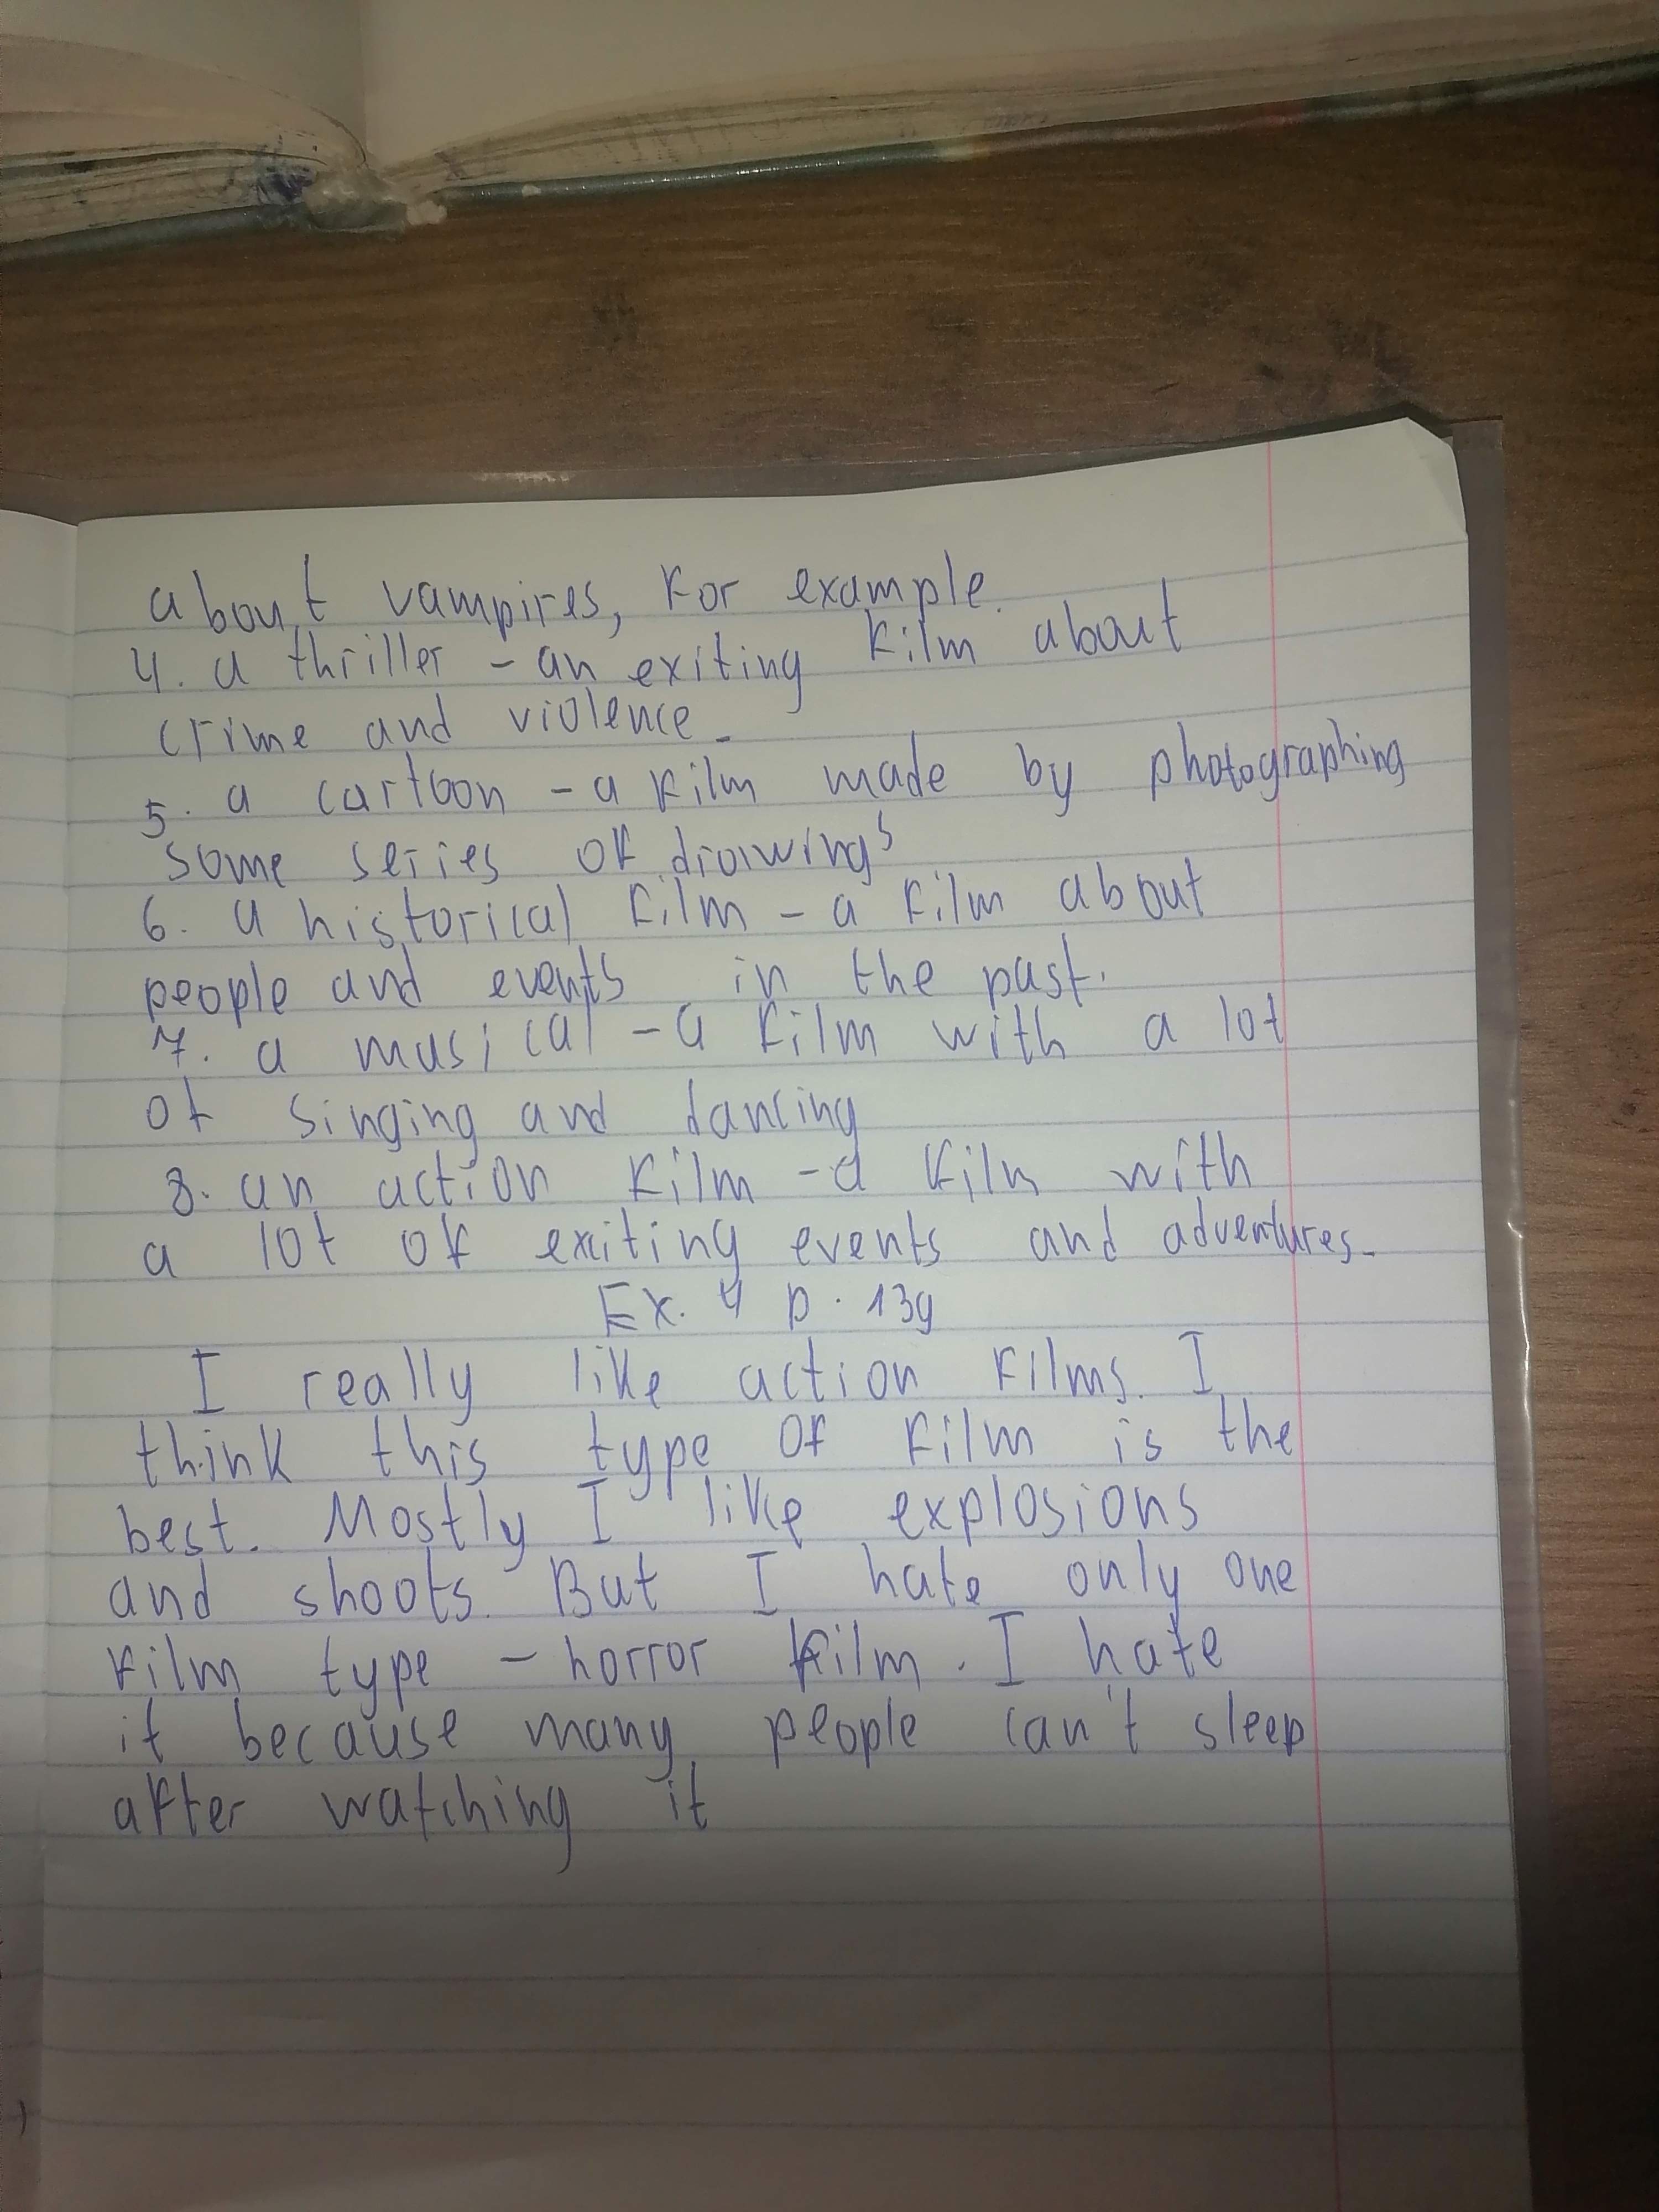 about vampires, for example.
4. a thriller - an exiting film about
crime and violence.
5. a cartoon - a film made by photographing
some series of drawings
6. a historical film - a film about
people and events in the past.
7. a musical - a film with a lot
of singing and dancing
8. an action film - a film with
a lot of exiting events and adventures.
Ex. 4 p. 139
I really like action films. I
think this type of film is the
best. Mostly I like explosions
and shoots. But I hate only one
film type - horror film. I hate
it because many people can't sleep
after watching it